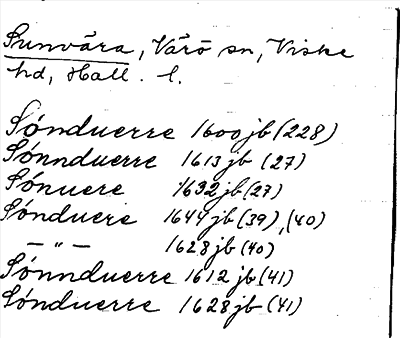 Sunvära, Värö sn, Viske
hd, Hall. l.
Sónduerre 1600 jb (228)
Sónnduerre 1613 jb (27)
Sónuere 1632 jb (27)
Sónduere 1644 jb (39), (40)
— " — 1628 jb (40)
Sónnduerre 1612 jb (41)
Sónduerre 1628 jb (41)